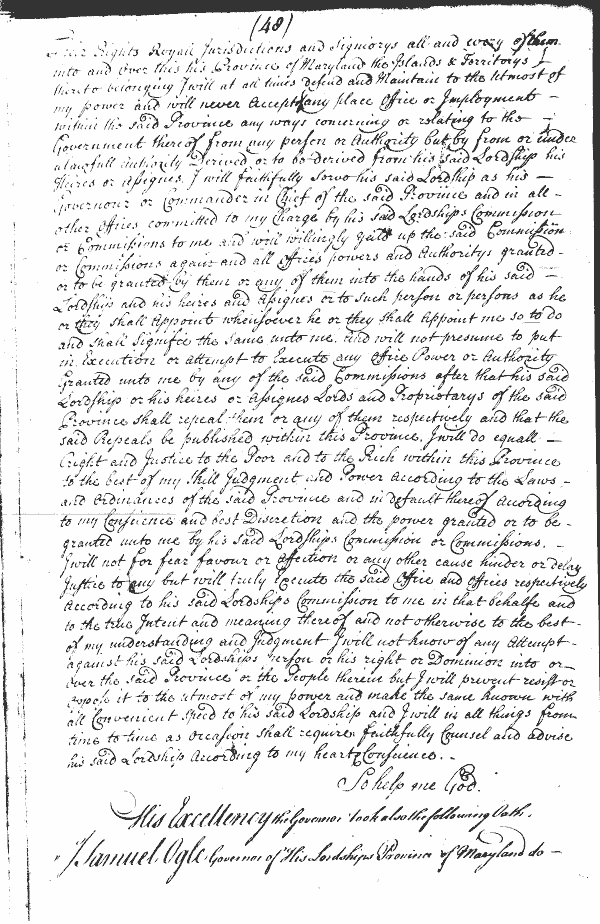 (48)
their Rights Royall Jurisdictions and Signiorys all and every of them
into and over this his Province of Maryland the Islands & Territorys
thereto belonging I will at all times defend and Maintain to the utmost of
my power and will never Accept of any place Office or Imployment –
within the said Province any ways concerning or relating to the –
Government thereof from any person or Authority but by from or under
a lawfull authority Derived or to be derived from his said Lordship his
Heires or Assignes. I will faithfully serve his said Lordship as his –
Governour or Commander in Chief of the said Province and in all –
other offices committed to my Charge by his said Lordships Commission
or Commissions to me and will willingly yeild up the said Commission
or Commissions again and all offices powers and Authoritys granted –
or to be granted by them or any of them into the hands of his said –
Lordship and his heires and Assignes or to such person or persons as he
or they shall Appoint whensoever he or they shall Appoint me so to do
and shall signifie the same unto me, and will not presume to put
in Execution or attempt to Execute any office Power or Authority
Granted unto me by any of the said Commissions after that his said
Lordship or his heires or Assignes Lords and Proprietarys of the said
Province shall repeal them or any of them respectively and that the
said Repeals be published within this Province. I will do equall –
right and Justice to the Poor and to the Rich within this Province
to the best of my Skill Judgment and Power According to the Laws –
and Ordinances of the said Province and in default thereof Acording
to my Consience and best Discretion and the power granted or to be –
granted unto me by his said Lordships Commission or Commissions.
I will not for fear favour or affection or any other cause hinder or delay
Justice to any but will truly Execute the said Office and offices respectively
According to his said Lordships Commission to me in that behalfe and
to the true Intent and meaning thereof and not otherwise to the best –
of my understanding and Judgment I will not know of any Attempt –
against his said Lordships person or his right or Dominion into or –
over the said Province or the People therein but I will prevent resist or
oppose it to the utmost of my power and make the same known with
all Convenient speed to his said Lordship and I will in all things from
time to time as occasion shall require faithfully Counsel and advise
his said Lordship According to my heart & Consience. –
So help me God.
His Excellency the Governor took also the following Oath.
I Samuel Ogle Governor of His Lordships Province of Maryland do –